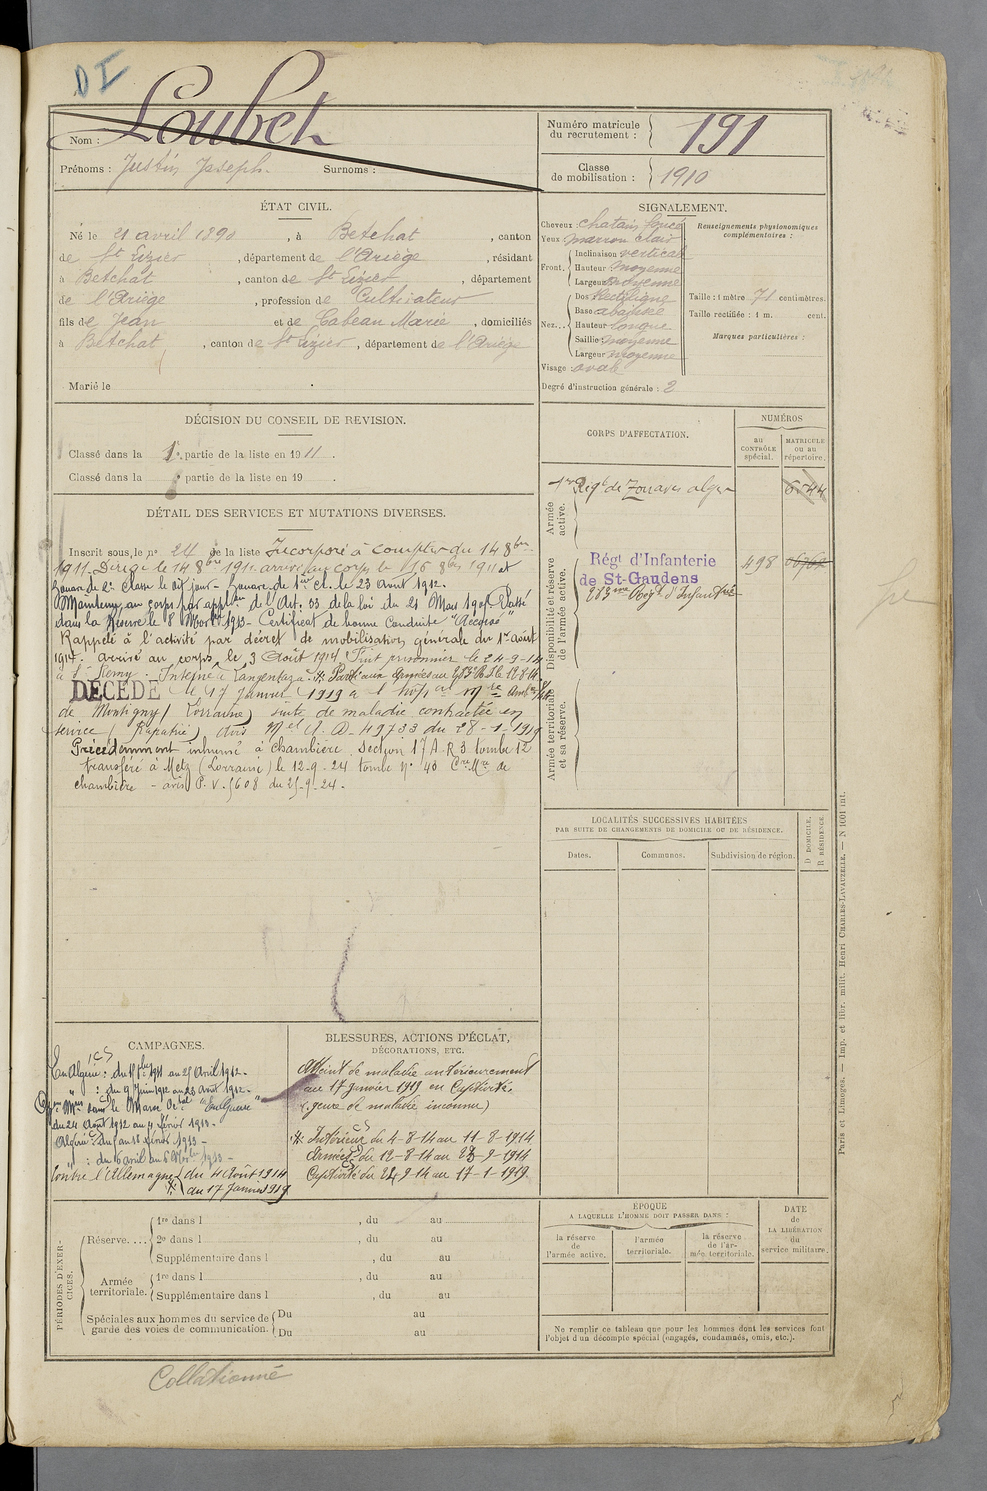 DI
Nom : Loubet
Prénoms : Justin Joseph. Surnoms :
Numéro matricule du recrutement : 191
Classe de mobilisation : 1910
ÉTAT CIVIL.
Né le 21 avril 1890, à Betchat, canton
de St Lizier, département de l'Ariège, résidant
à Betchat, canton de St Lizier, département
de l'Ariège, profession de Cultivateur
fils de Jean et de Cabeau Marie, domiciliés
à Betchat, canton de St Lizier, département de l'Ariège
Marié le
SIGNALEMENT.
Cheveux : chatain foncé
Yeux marron clair
Front. Inclinaison vertical
Hauteur moyenne
Largeur moyenne
Nez... Dos Rectiligne
Base abaissé
Hauteur longue
Saillie moyenne
Largeur moyenne
Visage : ovale
Degré d'instruction générale : 2
Renseignements physionomiques complémentaires :
Taille : 1 mètre 71 centimètres.
Taille rectifiée : 1 m. cent.
Marques particulières :
DÉCISION DU CONSEIL DE REVISION.
Classé dans la 1e partie de la liste en 1911.
Classé dans la partie de la liste en 19 .
DÉTAIL DES SERVICES ET MUTATIONS DIVERSES.
Inscrit sous le no 24 de la liste Incorporé à compter du 14 8bre
1911. Dirigé le 14 8bre 1911. arrivé au corps le 16 8bre 1911 et
Zouave de 2e Classe le dit jour - Zouave de 1re cl. le 23 Août 1912.
Maintenu au corps par applon de l'Art. 33 de la loi du 21 Mars 1905 Passé
dans la Réserve le 8 Novbre 1913 - Certificat de bonne Conduite "Accordé"
Rappelé à l'activité par décret de mobilisation générale du 1er août
1914. arrivé au corps le 3 Août 1914 Fait prisonnier le 24-9-14
à St Remy. Interné à Langensalza. Parti aux Armées au 283e R.I. le 12-8-14.
DÉCÉDÉ le 17 Janvier 1919 à l'hôpital
de Montigny (Lorraine) suite de maladie contractée en
service (Rapatrié) avis Mel A. D. 49733 du 28-1-1919
Précédemment inhumé à Chambière. Section 17 A. R 3 tombe 12
transféré à Metz (Lorraine) le 12-9-24 tombe No 40 Cre Mre de
chambière - avis P. V. 5608 du 25-9-24.
CORPS D'AFFECTATION.
NUMÉROS
au CONTRÔLE spécial.
MATRICULE ou au répertoire.
Armée active.
1er Régt de Zouaves alger 6544
Disponibilité et réserve de l'armée active.
Régt d'Infanterie
de St-Gaudens 498
283me Régt d'Infanterie
Armée territoriale et sa réserve.
LOCALITÉS SUCCESSIVES HABITÉES
PAR SUITE DE CHANGEMENTS DE DOMICILE OU DE RÉSIDENCE.
Dates.
Communes.
Subdivision de région.
D DOMICILE.
R RÉSIDENCE.
CAMPAGNES.
En Algérie : du 15 8bre 1911 au 25 Avril 1912.
" : du 9 Juin 1912 au 23 Août 1912.
dans le Maroc Ortal "En Guerre"
du 24 Août 1912 au 4 février 1913.
Algérie : du 5 au 18 février 1913 -
" : du 6 avril au 6 Novbre 1913 -
Contre l'Allemagne du 4 Août 1914
au 17 Janvier 1919
BLESSURES, ACTIONS D'ÉCLAT, DÉCORATIONS, ETC.
Atteint de maladie antérieurement
au 17 janvier 1919 en Captivité.
(genre de maladie inconnue)
Intérieur du 4-8-14 au 11-8-1914
Armées du 12-8-14 au 23-9-1914
Captivité du 24-9-14 au 17-1-1919.
PÉRIODES D'EXERCICES.
Réserve.... 1re dans l , du au
2e dans l , du au
Supplémentaire dans l , du au
Armée territoriale. 1re dans l , du au
Supplémentaire dans l , du au
Spéciales aux hommes du service de garde des voies de communication. Du au
Du au
EPOQUE
A LAQUELLE L'HOMME DOIT PASSER DANS :
la réserve de l'armée active.
l'armée territoriale.
la réserve de l'armée territoriale.
DATE de LA LIBÉRATION du service militaire.
Ne remplir ce tableau que pour les hommes dont les services font
l'objet d'un décompte spécial (engagés, condamnés, omis, etc.).
Paris et Limoges. — Imp. et libr. milit. Henri CHARLES-LAVAUZELLE. — N 1001 int.
Collationné